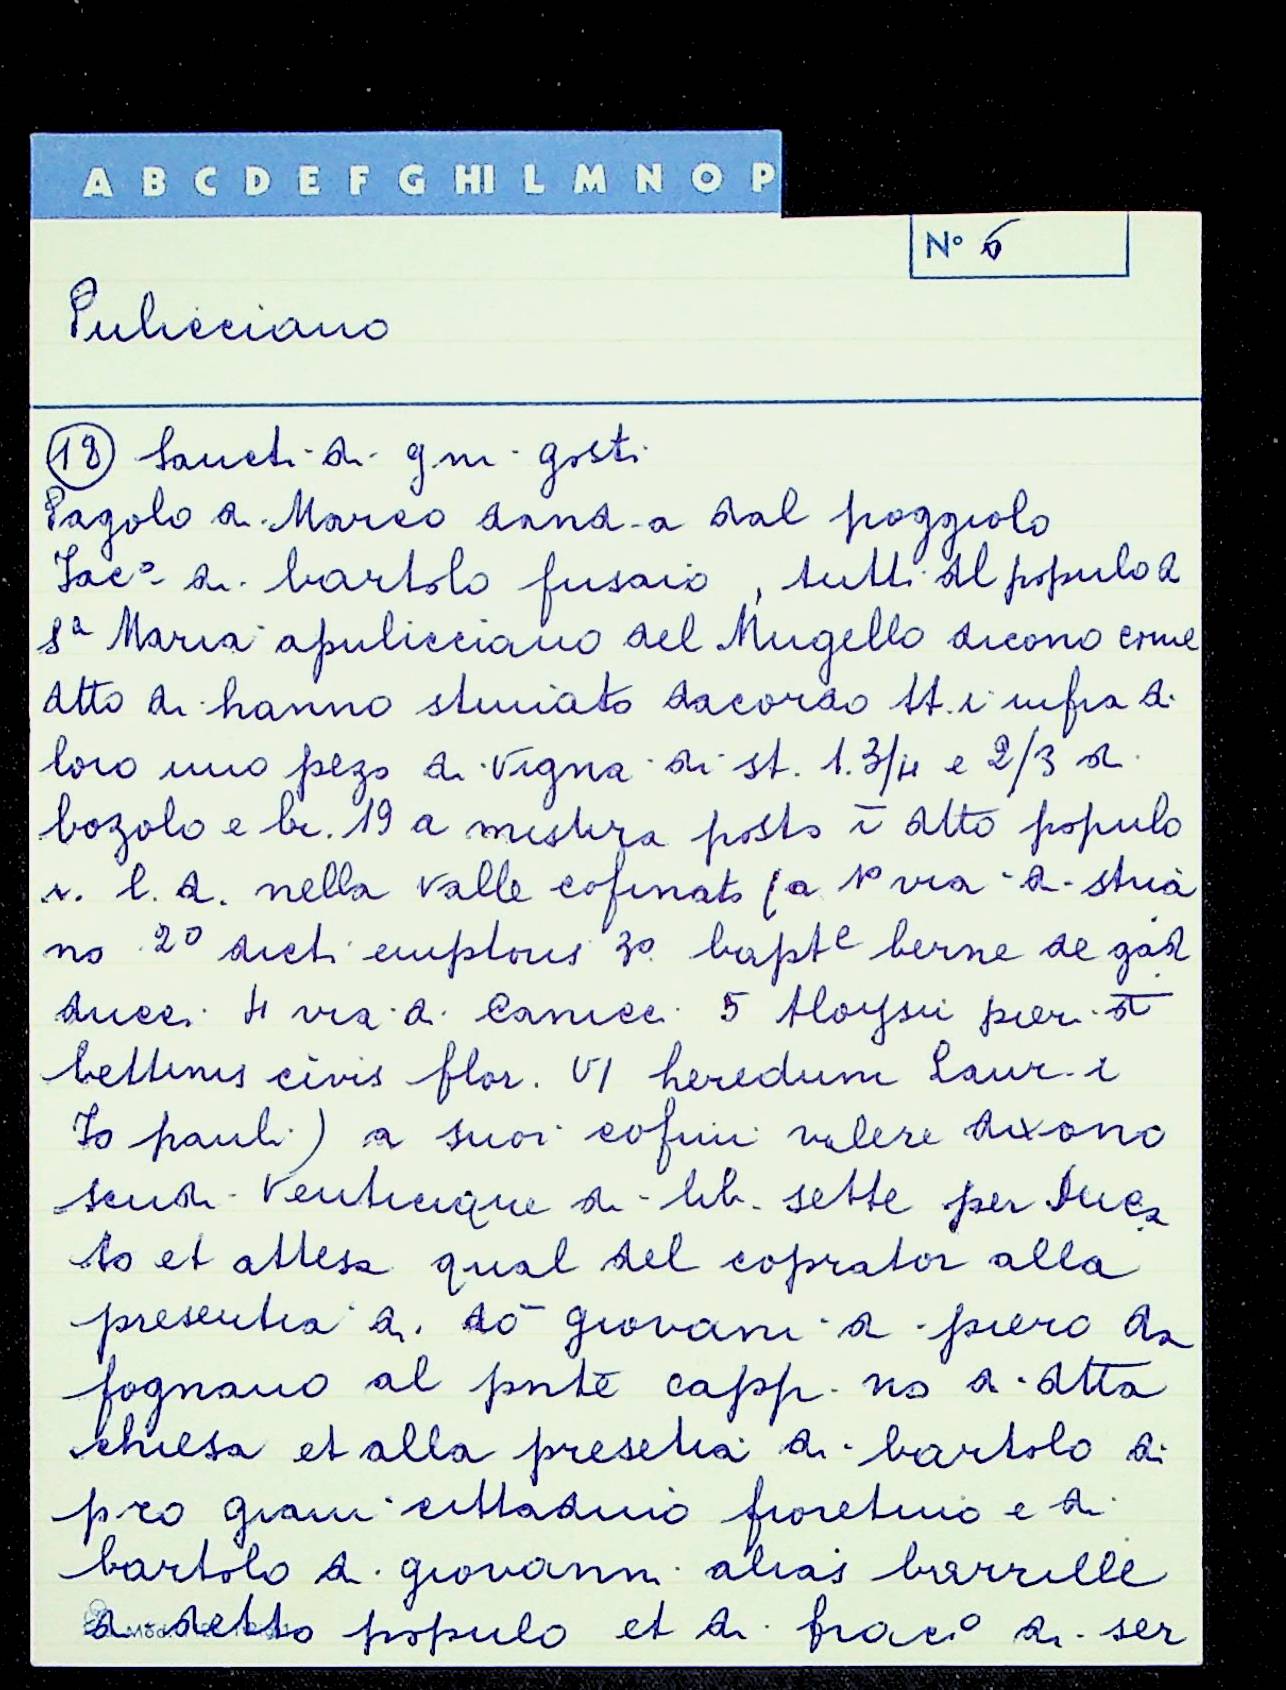 A B C D E F G HI L M N O P
Nº 6
Pulicciano
18 Sancti di g.ni gosti
Pagolo di Marco dand-a dal poggiolo
Jacº di bartolo fusaio, tutti dl populo d
Sª Maria apulicciano del Mugello dicono come
dtto di hanno stimato dacordo tt.i infra di
loro uno pezo di vigna di st. 1.3/4 e 2/3 d
bozolo e br. 19 a misura posto ī dtto populo
l. d. nella valle cofinato (a 1º via d. stria
no 2º dicti emptoris 3º baptᵉ berne de gad
ducci 4 via d. Canicci 5 Aloysii pieri
bettinis civis flor. VI heredum Laur. i
Jo pauli) a suoi cofini valere dixono
scudi Venticique di lib. sette per duca
to et attesa qual del coprator alla
presentia di dō giovani d piero da
fognano al pntē capp.no d. dtta
chiesa et alla presetia di bartolo di
pro giani cittadino fioretino e di
bartolo di giovanni alias barrille
di detto populo et di fracº di ser